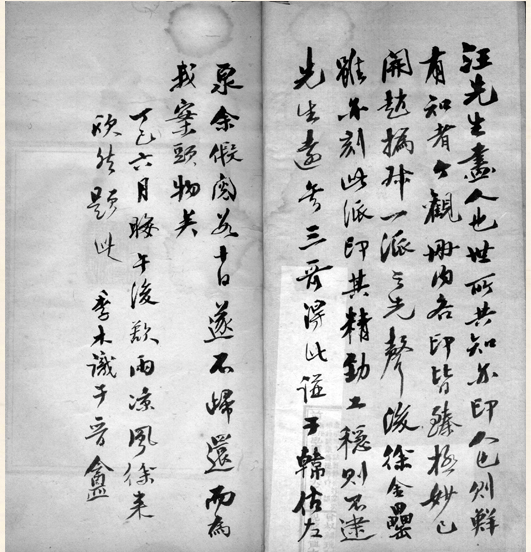 汪先生畫人也世所共知亦印人也則鮮
有知者今觀冊内各印皆臻極妙已
開趙撝叔一派之先聲後徐金罍
雖亦刻此派印其精勁工穩則不逮
先生遠矣三晋得此謚于韓估左
泉余假閲兹十日遂不歸還而為
我案頭物矣
丁巳六月晦午後歇雨涼風徐来
欣然題此 季木識于晋盦